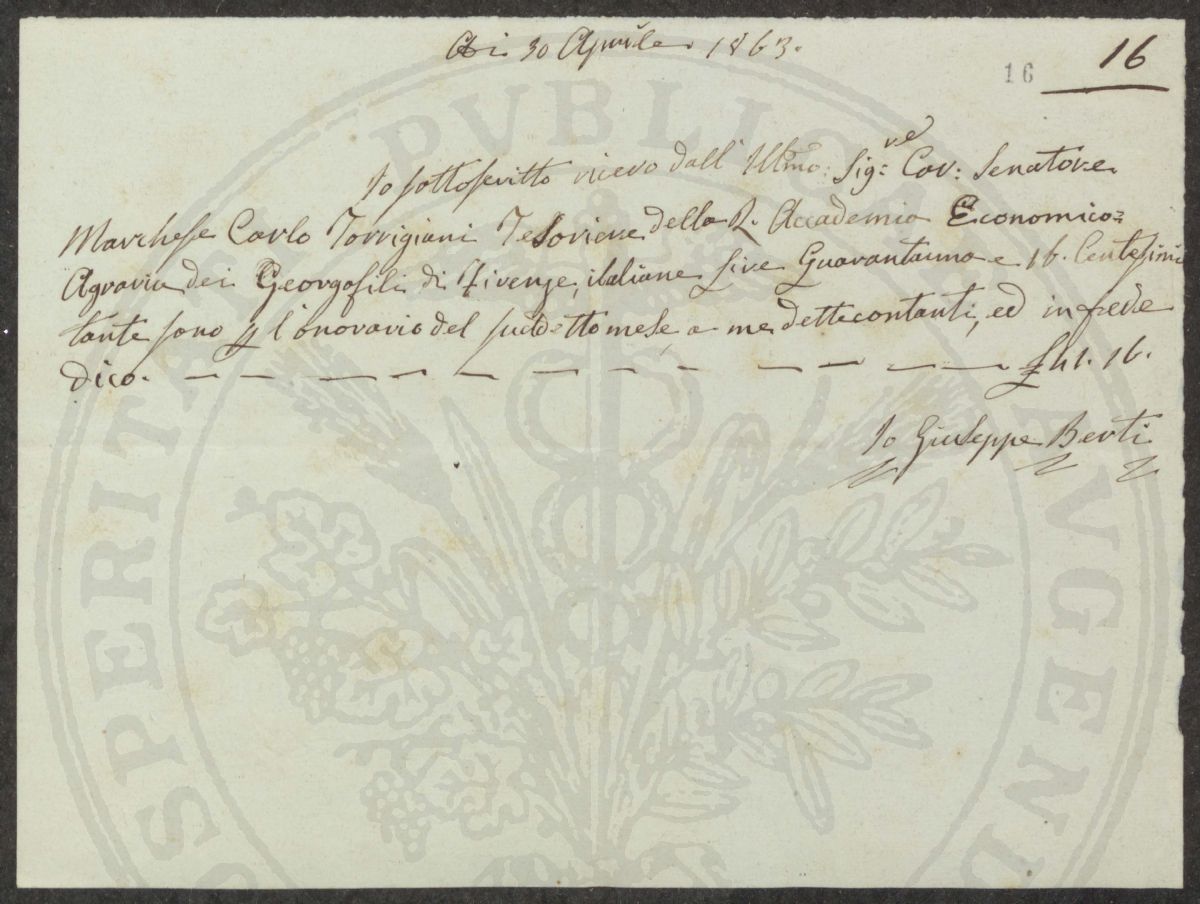 Adi 30 Aprile 1863.
16
16
Io sottoscritto ricevo dall' Illmo: Sig:re Cav: Senatore
Marchese Carlo Torrigiani Tesoriere della R. Accademia Economico=
Agraria dei Georgofili di Firenze, italiane Lire Quarantauna e 16. Centesimi
tante sono p l'onorario del suddetto mese, a me dette contanti, ed in fede
dico. — — — — — — — — — — — £41. 16.
Io Giuseppe Berti
PROSPERITATI PVBLICAE AVGENDAE